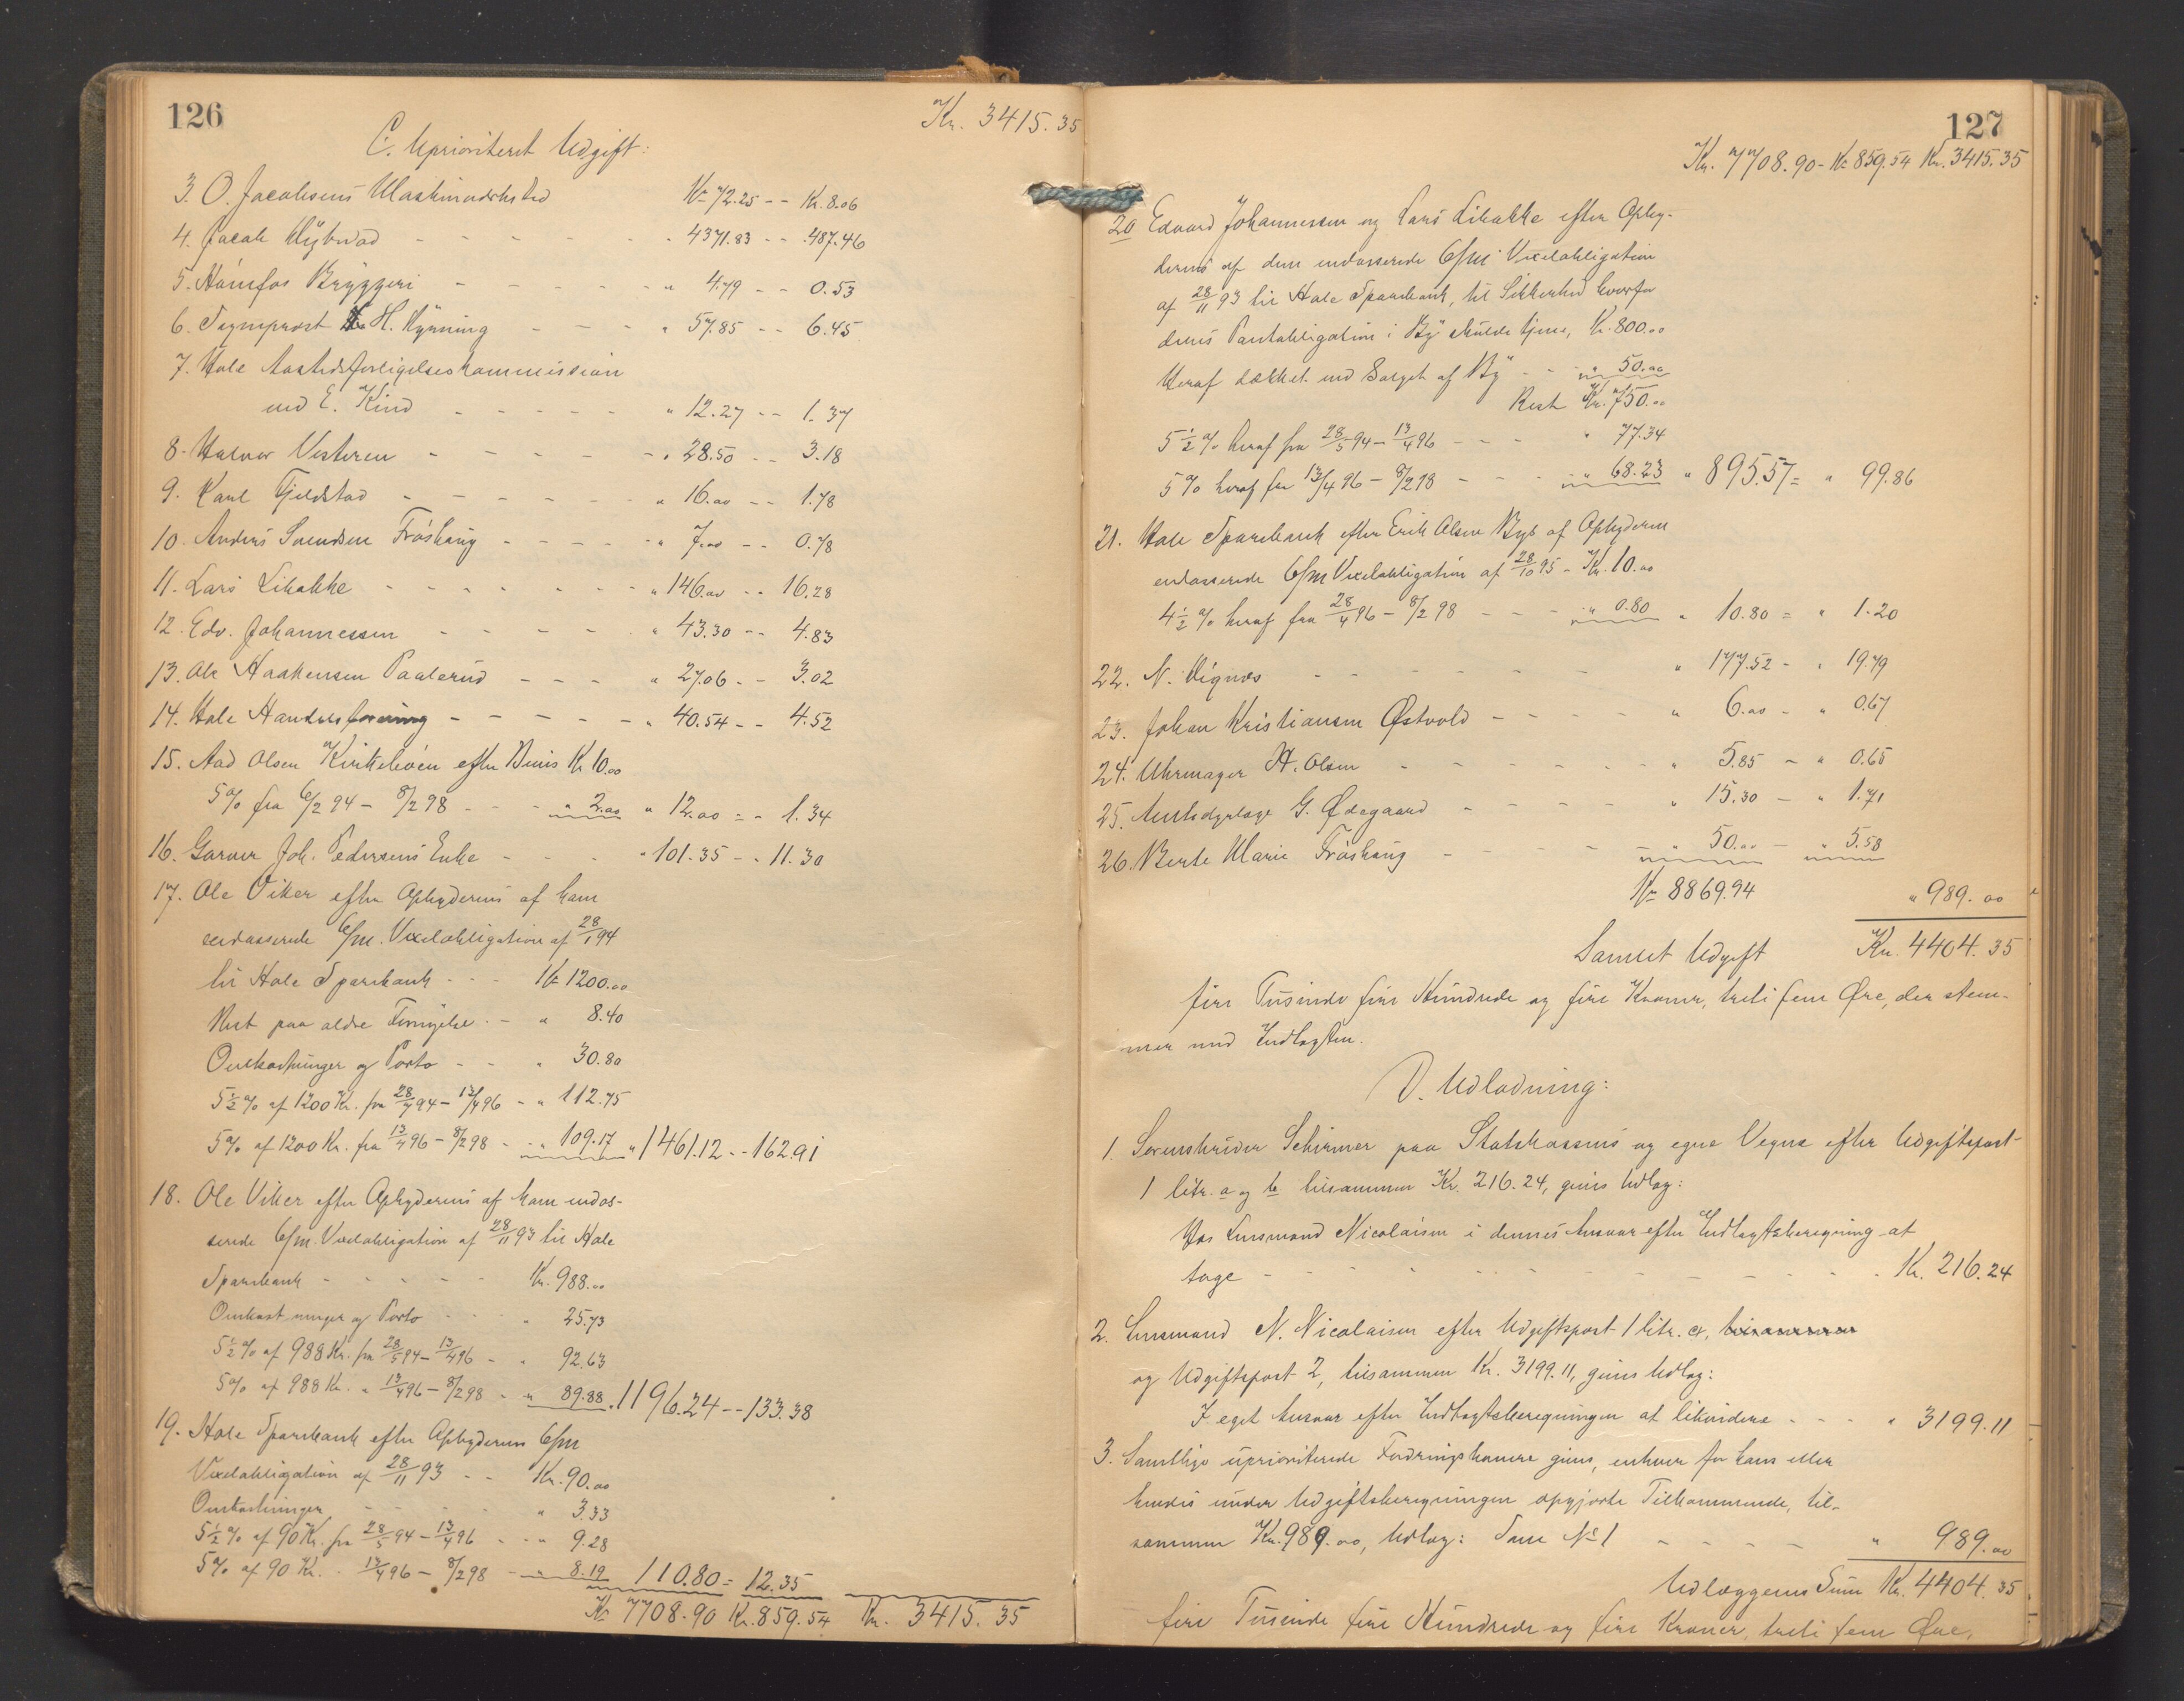 126
Kr. 3415.35
C. Uprioriteret Udgift:
3. O. Jacobsens Maskinværksted Kr 72.25 -- Kr. 8.06
4. Jacob Myhrvad - - - - - " 4371.83 - - 487.46
5. Hönefos Bryggeri - - - - - " 4.79 - - 0.53
6. Sogneprest H. Rynning - - - " 57.85 -- 6.45
7. Hole Aastedsforligelseskommission
ved E. Kind - - - - - " 12.27 -- 1.37
8. Halvor Vesteren - - - - - " 28.50 -- 3.18
9. Karl Fjeldstad - - - - - " 16.00 -- 1.78
10. Anders Svendsen Fröshaug - - - - " 7.00 -- 0.78
11. Lars Libakke - - - - - - " 146.00 -- 16.28
12. Edv. Johannessen - - - - - " 43.30 -- 4.83
13. Ole Haakensen Paalerud - - - " 27.06 -- 3.02
14. Hole Handelsforening - - - - - " 40.54 -- 4.52
15. Aad Olsen Kirkebøen efter Bevis Kr 10.00
5% fra 6/2 94 - 8/2 98 - - - " 2.00 " 12.00 = - 1.34
16. Garver Joh. Pedersens Enke - - - " 101.35 - - 11.30
17. Ole Viker efter Ophyderens af ham
endosserede 6/m. Vexelobligation af 28/1 94
til Hole Sparebank - - - Kr 1200.00
Rest paa ældre Fornyelse - - " 8.40
Omkostninger og Porto - - " 30.80
5½% af 1200 Kr. fra 28/7 94 - 13/4 96 - " 112.75
5% af 1200 Kr. fra 13/4 96 - 8/2 98 - - " 109.17 " 1461.12 - - 162.91
18. Ole Viker efter Ophyderens af ham endos-
serede 6/m. Vexelobligation af 28/11 93 til Hole
Sparebank - - - - - Kr. 988.00
Omkostninger og Porto - - - " 25.73
5½% af 988 Kr. fra 28/5 94 - 13/4 96 - " 92.63
5% af 988 Kr. " 13/4 96 - 8/2 98 - " 89.88 . 1196.24 -- 133.38
19. Hole Sparebank efter Ophyderens 6/m
Vexelobligation af 28/11 93 - - Kr. 90.00
Omkostninger - - - - " 3.33
5½% af 90 Kr. fra 28/5 94 - 13/4 96 - - " 9.28
5% af 90 Kr. - 13/4 96 - 8/2 98 - " 8.19 110.80 = 12.35
Kr 7708.90 Kr. 859.54 Kr. 3415.35
127
Kr. 7708.90 - Kr 859.54 Kr. 3415.35
20 Edvard Johannessen og Lars Libakke efter Ophy-
derens af dem endosserede 6/m Vexelobligation
af 28/11 93 til Hole Sparebank, til Sikkerhed hvorfor
deres Pantobligation i By skulde tjene, Kr. 800.00
Heraf dækket ved Salget af By - - " 50.00
Rest Kr. 750.00
5½% heraf fra 28/5 94 - 13/4 96 - - - " 77.34
5% heraf fra 13/4 96 - 8/2 98 - - - " 68.23 " 895.57 = " 99.86
21. Hole Sparebank efter Erik Olsen Bys af Ophyderen
endosserede 6/m Vexelobligation af 28/10 95 - Kr. 10.00
4½% heraf fra 28/4 96 - 8/2 98 - - - " 0.80 " 10.80 = " 1.20
22. N. Vignæs - - - - - - " 177.52 - " 19.79
23. Johan Kristiansen Østvold - - - - " 6.00 - " 0.67
24. Uhrmager H. Olsen - - - - - - " 5.85 - " 0.65
25. Amtsdyrlæge G. Ødegaard - - - - " 15.30 - " 1.71
26. Berte Marie Fröshaug - - - - - " 50.00 - " 5.58
Kr 8869.94 " 989.00
Samlet Udgift Kr. 4404.35
fire Tusinde fire Hundrede og fire Kroner, treti fem Øre, der stem-
mer med Indtægten.
D. Udlodning:
1. Sorenskriver Schirmer paa Statskassens og egne Vegne efter Udgiftspost
1 litr. a og b tilsammen Kr. 216.24, gives Udlæg:
Hos Lensmand Nicolaisen i dennes Ansvar efter Indtægtsberegning at
tage - - - - - - - - - - Kr. 216.24
2. Lensmand N. Nicolaisen efter Udgiftspost 1 litr. c, tilsammen
og Udgiftspost 2, tilsammen Kr. 3199.11, gives Udlæg:
I eget Ansvar efter Indtægtsberegningen at likvidere - - - " 3199.11
3. Samtlige uprioriterede Fordringshavere gives, enhver for hans eller
hendes under Udgiftsberegningen opgjorte Tilkommende, til-
sammen Kr. 989.00, Udlæg: Som No 1 - - - - " 989.00
Udlæggenes Sum Kr. 4404.35
fire Tusinde fire Hundrede og fire Kroner, treti fem Øre.